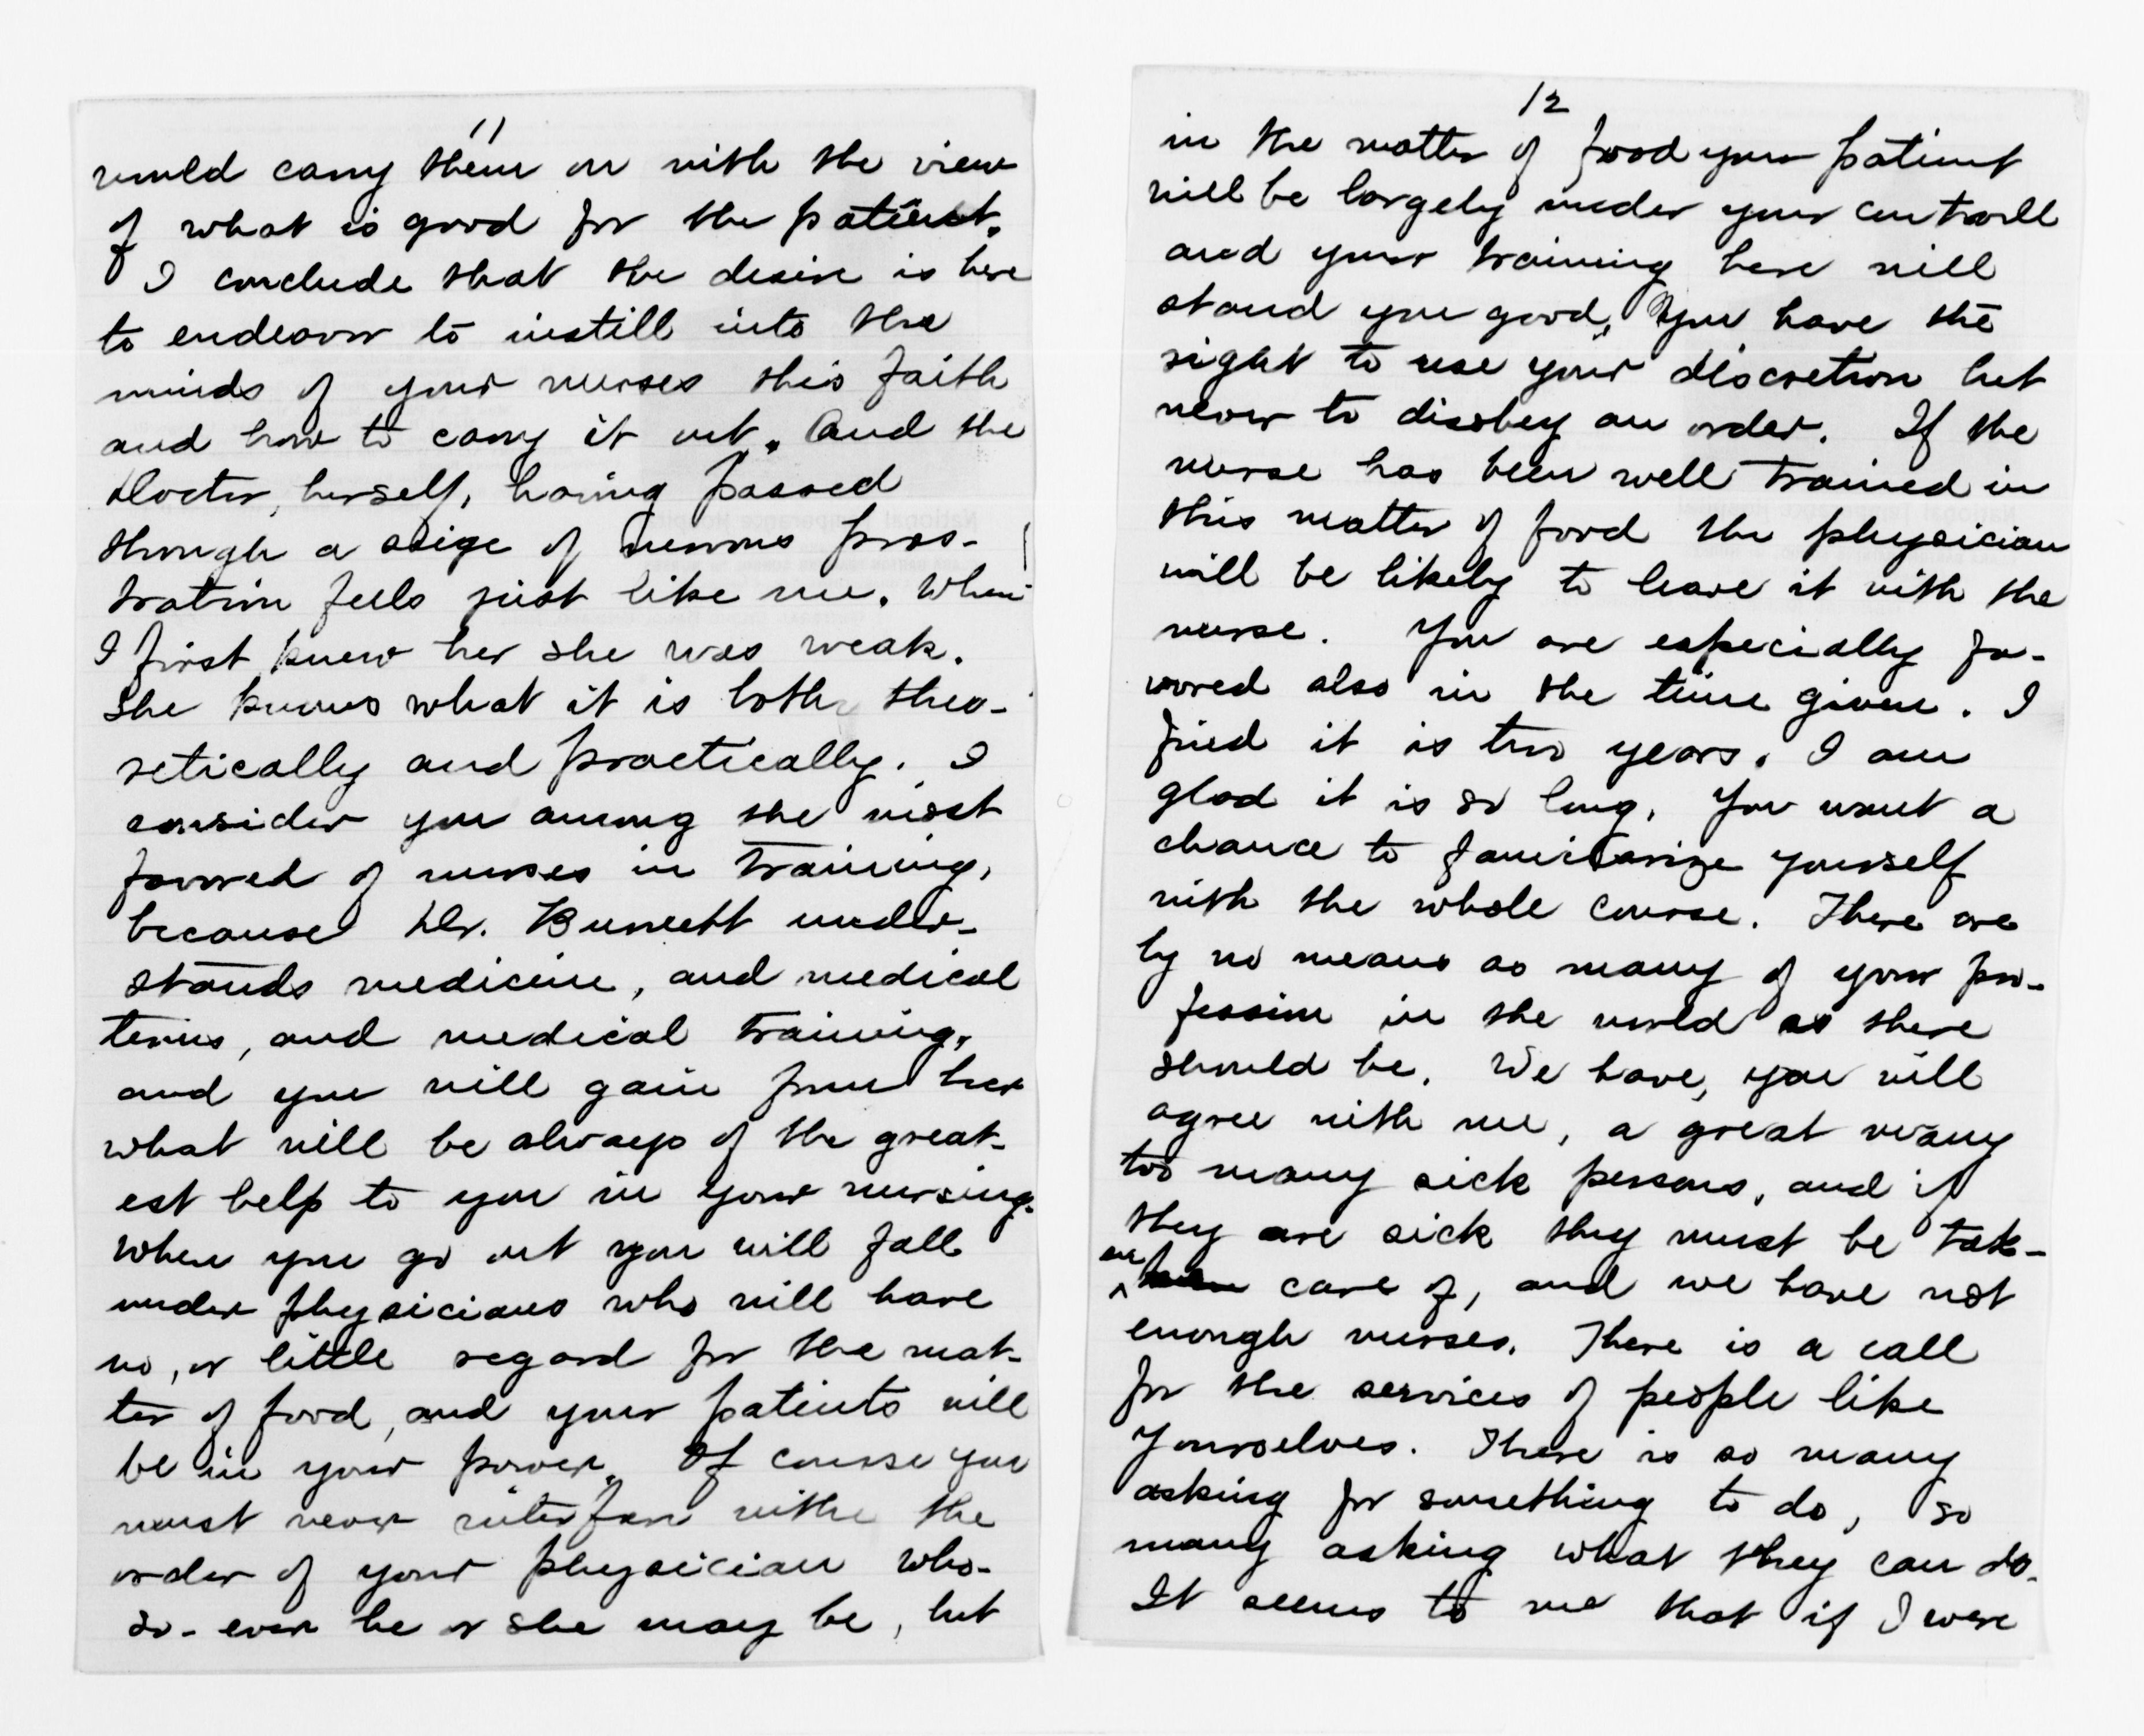 11
would carry them on with the view
of what is good for the patient.
I conclude that the desire is here
to endeavor to instill into the
minds of your nurses this faith
and how to carry it out. And the
Doctor, herself, having passed
through a seige of nervous pros-
tration feels just like me. When
I first knew her she was weak.
She knows what it is both theo-
retically and practically. I
consider you among the most
favored of nurses in training,
because Dr. Burnett under-
stands medicine, and medical
terms, and medical training,
and you will gain from her
what will be always of the great-
est help to you in your nursing.
When you go out you will fall
under physicians who will have
no, or little regard for the mat-
ter of food, and your patients will
be in your power. Of course you
must never interfere with the
order of your physician who-
so-ever he or she may be, but
12
in the matter of food your patient
will be largely under your controll
and your training here will
stand you good, You have the
right to use your discretion but
never to disobey an order. If the
nurse has been well trained in
this matter of food the physician
will be likely to leave it with the
nurse. You are especially fa-
vored also in the time given. I
find it is two years. I am
glad it is so long. You want a
chance to familiarize yourself
with the whole course. There are
by no means as many of your pro-
fession in the world as there
should be. We have, you will
agree with me, a great many
too many sick persons, and if
they are sick they must be tak-
en care of, and we have not
enough nurses. There is a call
for the services of people like
yourselves. There is so many
asking for something to do, so
many asking what they can do.
It seems to me that if I were